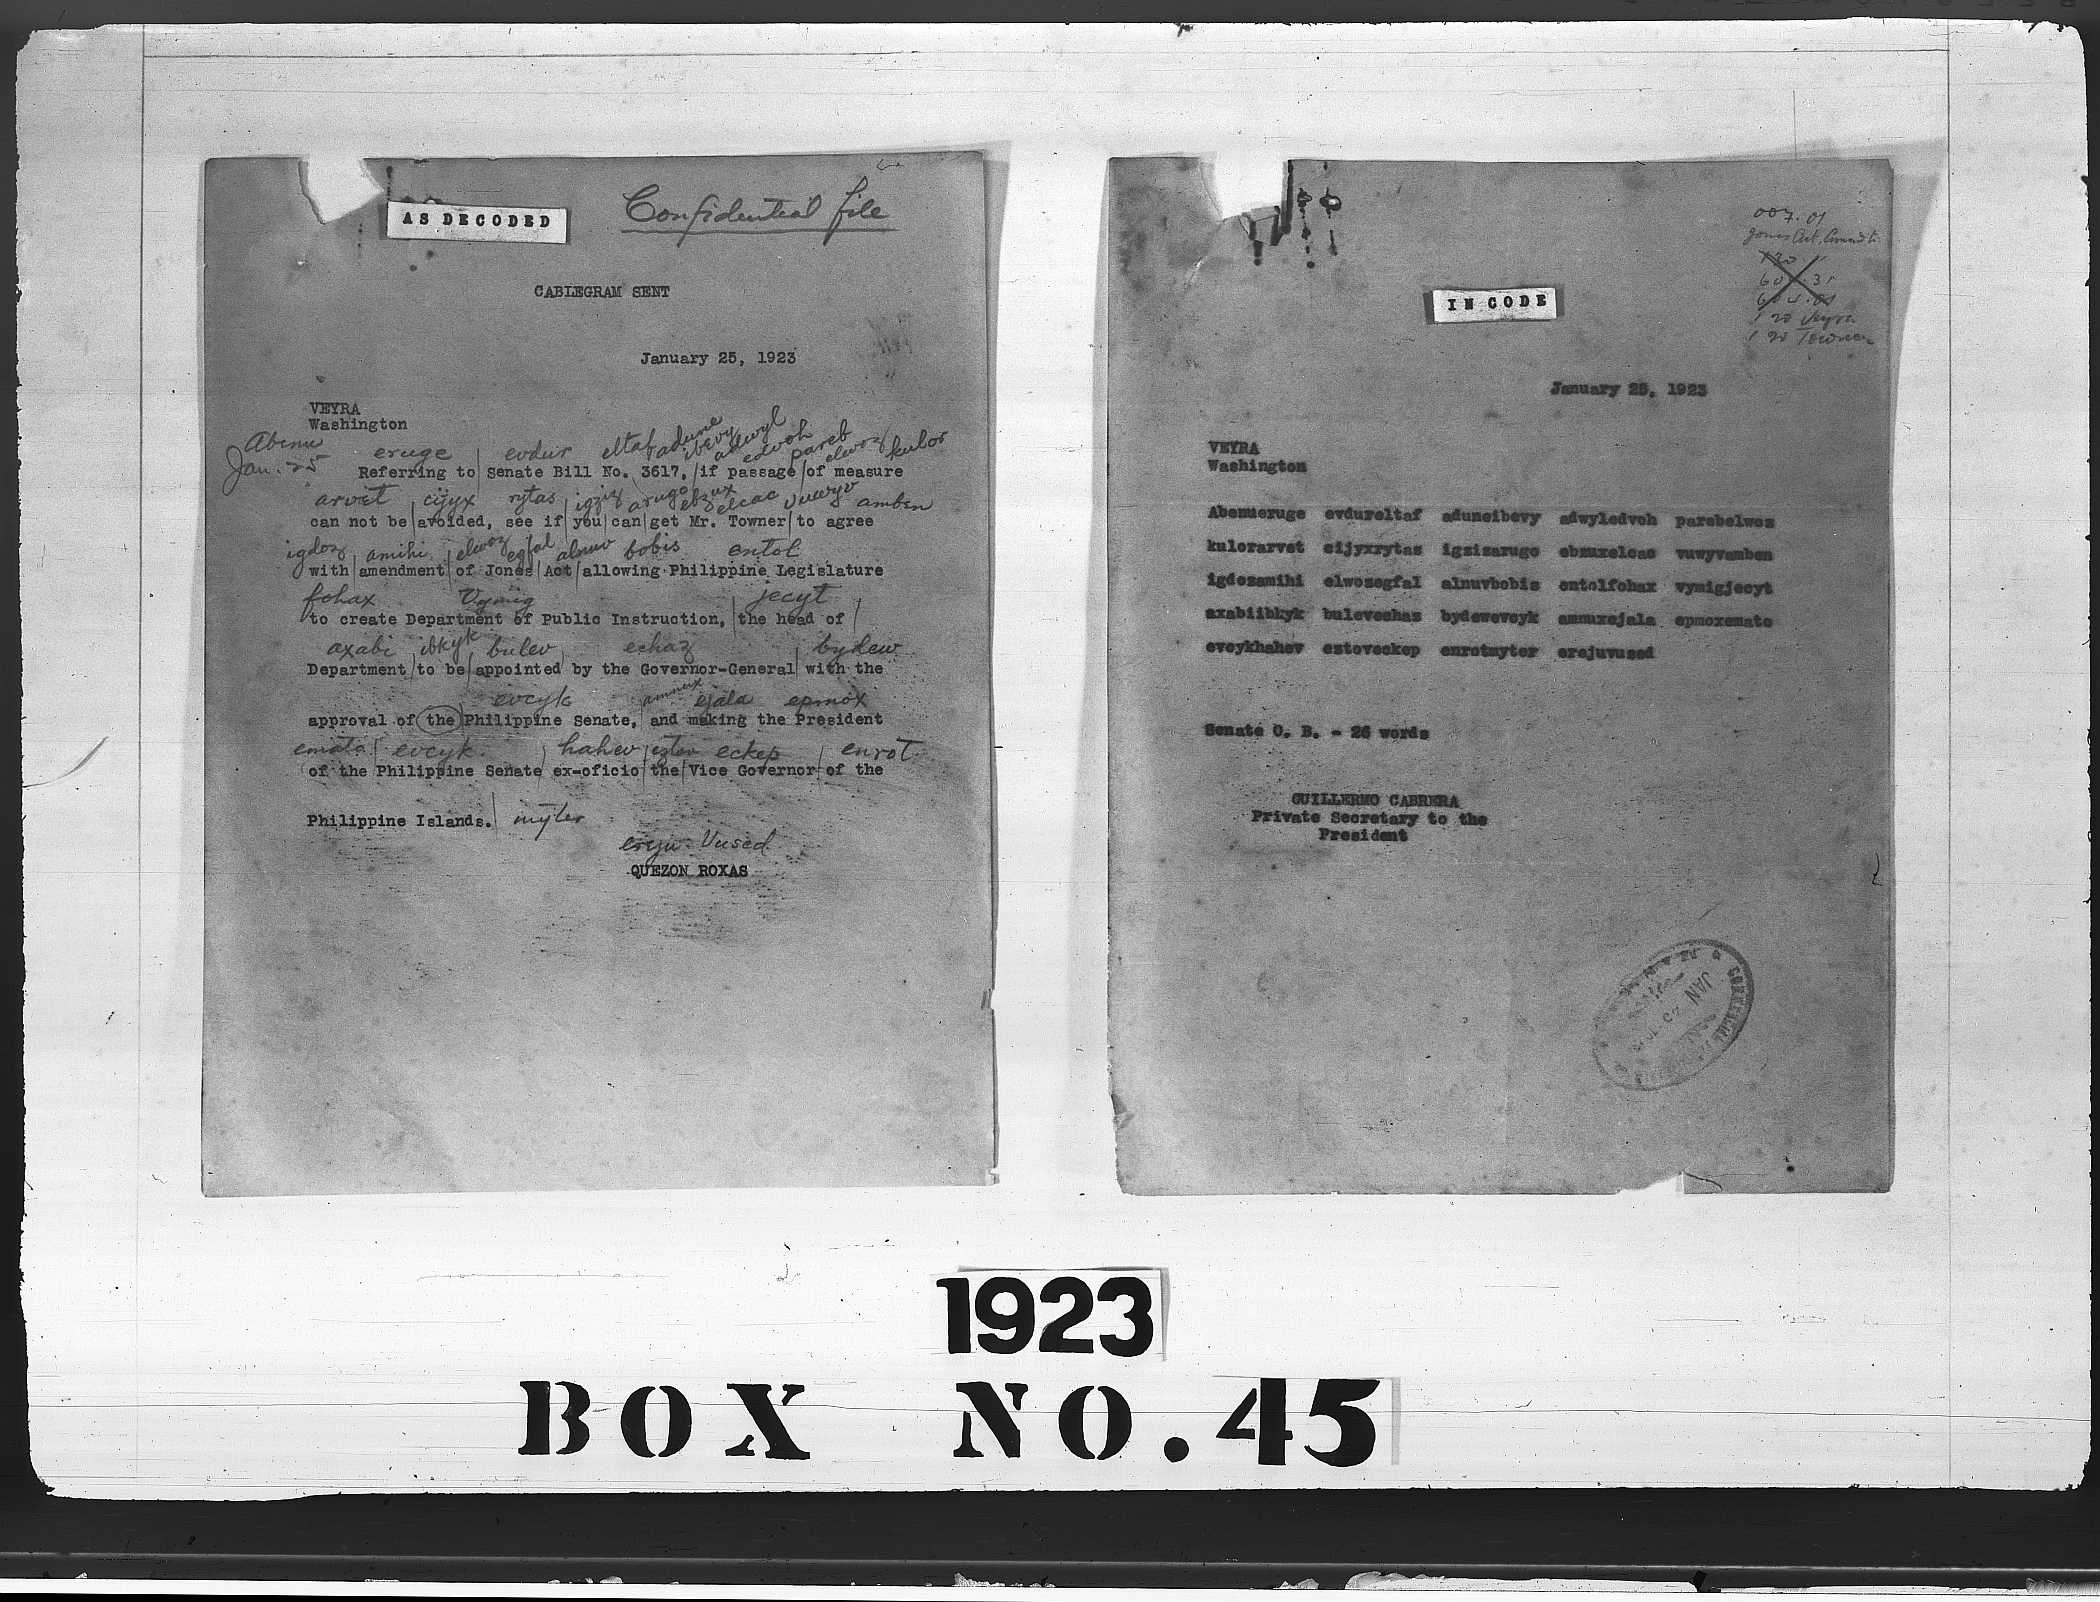 AS DECODED
Confidential file
CABLEGRAM SENT
January 25, 1923
VEYRA
Washington
Abenu eruge evdur eltaf adune ibevy adwyl edvoh pareb elwoz kulor
Jan. 25 Referring to Senate Bill No. 3617, if passage of measure
arvet cijyx rytas igziz arugo ebzux elcac vuwyv amben
can not be avoided, see if you can get Mr. Towner to agree
igdoz amihi elwoz egfal alnuv bobis entol
with amendment of Jones Act allowing Philippine Legislature
fohax vymig jecyt
to create Department of Public Instruction, the head of
axabi ibkyk bulev echaz bydew
Department to be appointed by the Governor-General with the
evcyk amnux ejala epmox
approval of the Philippine Senate, and making the President
emato evcyk. hahev eztov eckep enrot
of the Philippine Senate ex-oficio the Vice Governor of the
Philippine Islands. myter
ereju Vused
QUEZON ROXAS
007.01
Jones Act, Amendt.
120
60 .31
1 20 Veyra
1 20 Towner
IN CODE
January 25, 1923
VEYRA
Washington
Abenueruge evdureltaf aduneibevy adwyledvoh parebelwoz
kulorarvet cijyxrytas igzizarugo ebzuxelcac vuwyvamben
igdozamihi elwozegfal alnuvbobis entolfohax vymigjecyt
axabiibkyk bulevechaz bydewevcyk amnuxejala epmoxemato
evcykhahev eztoveckep enrotmyter erejuvused
Senate O. B. - 26 words
GUILLERMO CABRERA
Private Secretary to the
President
JAN
1923
BOX NO. 45